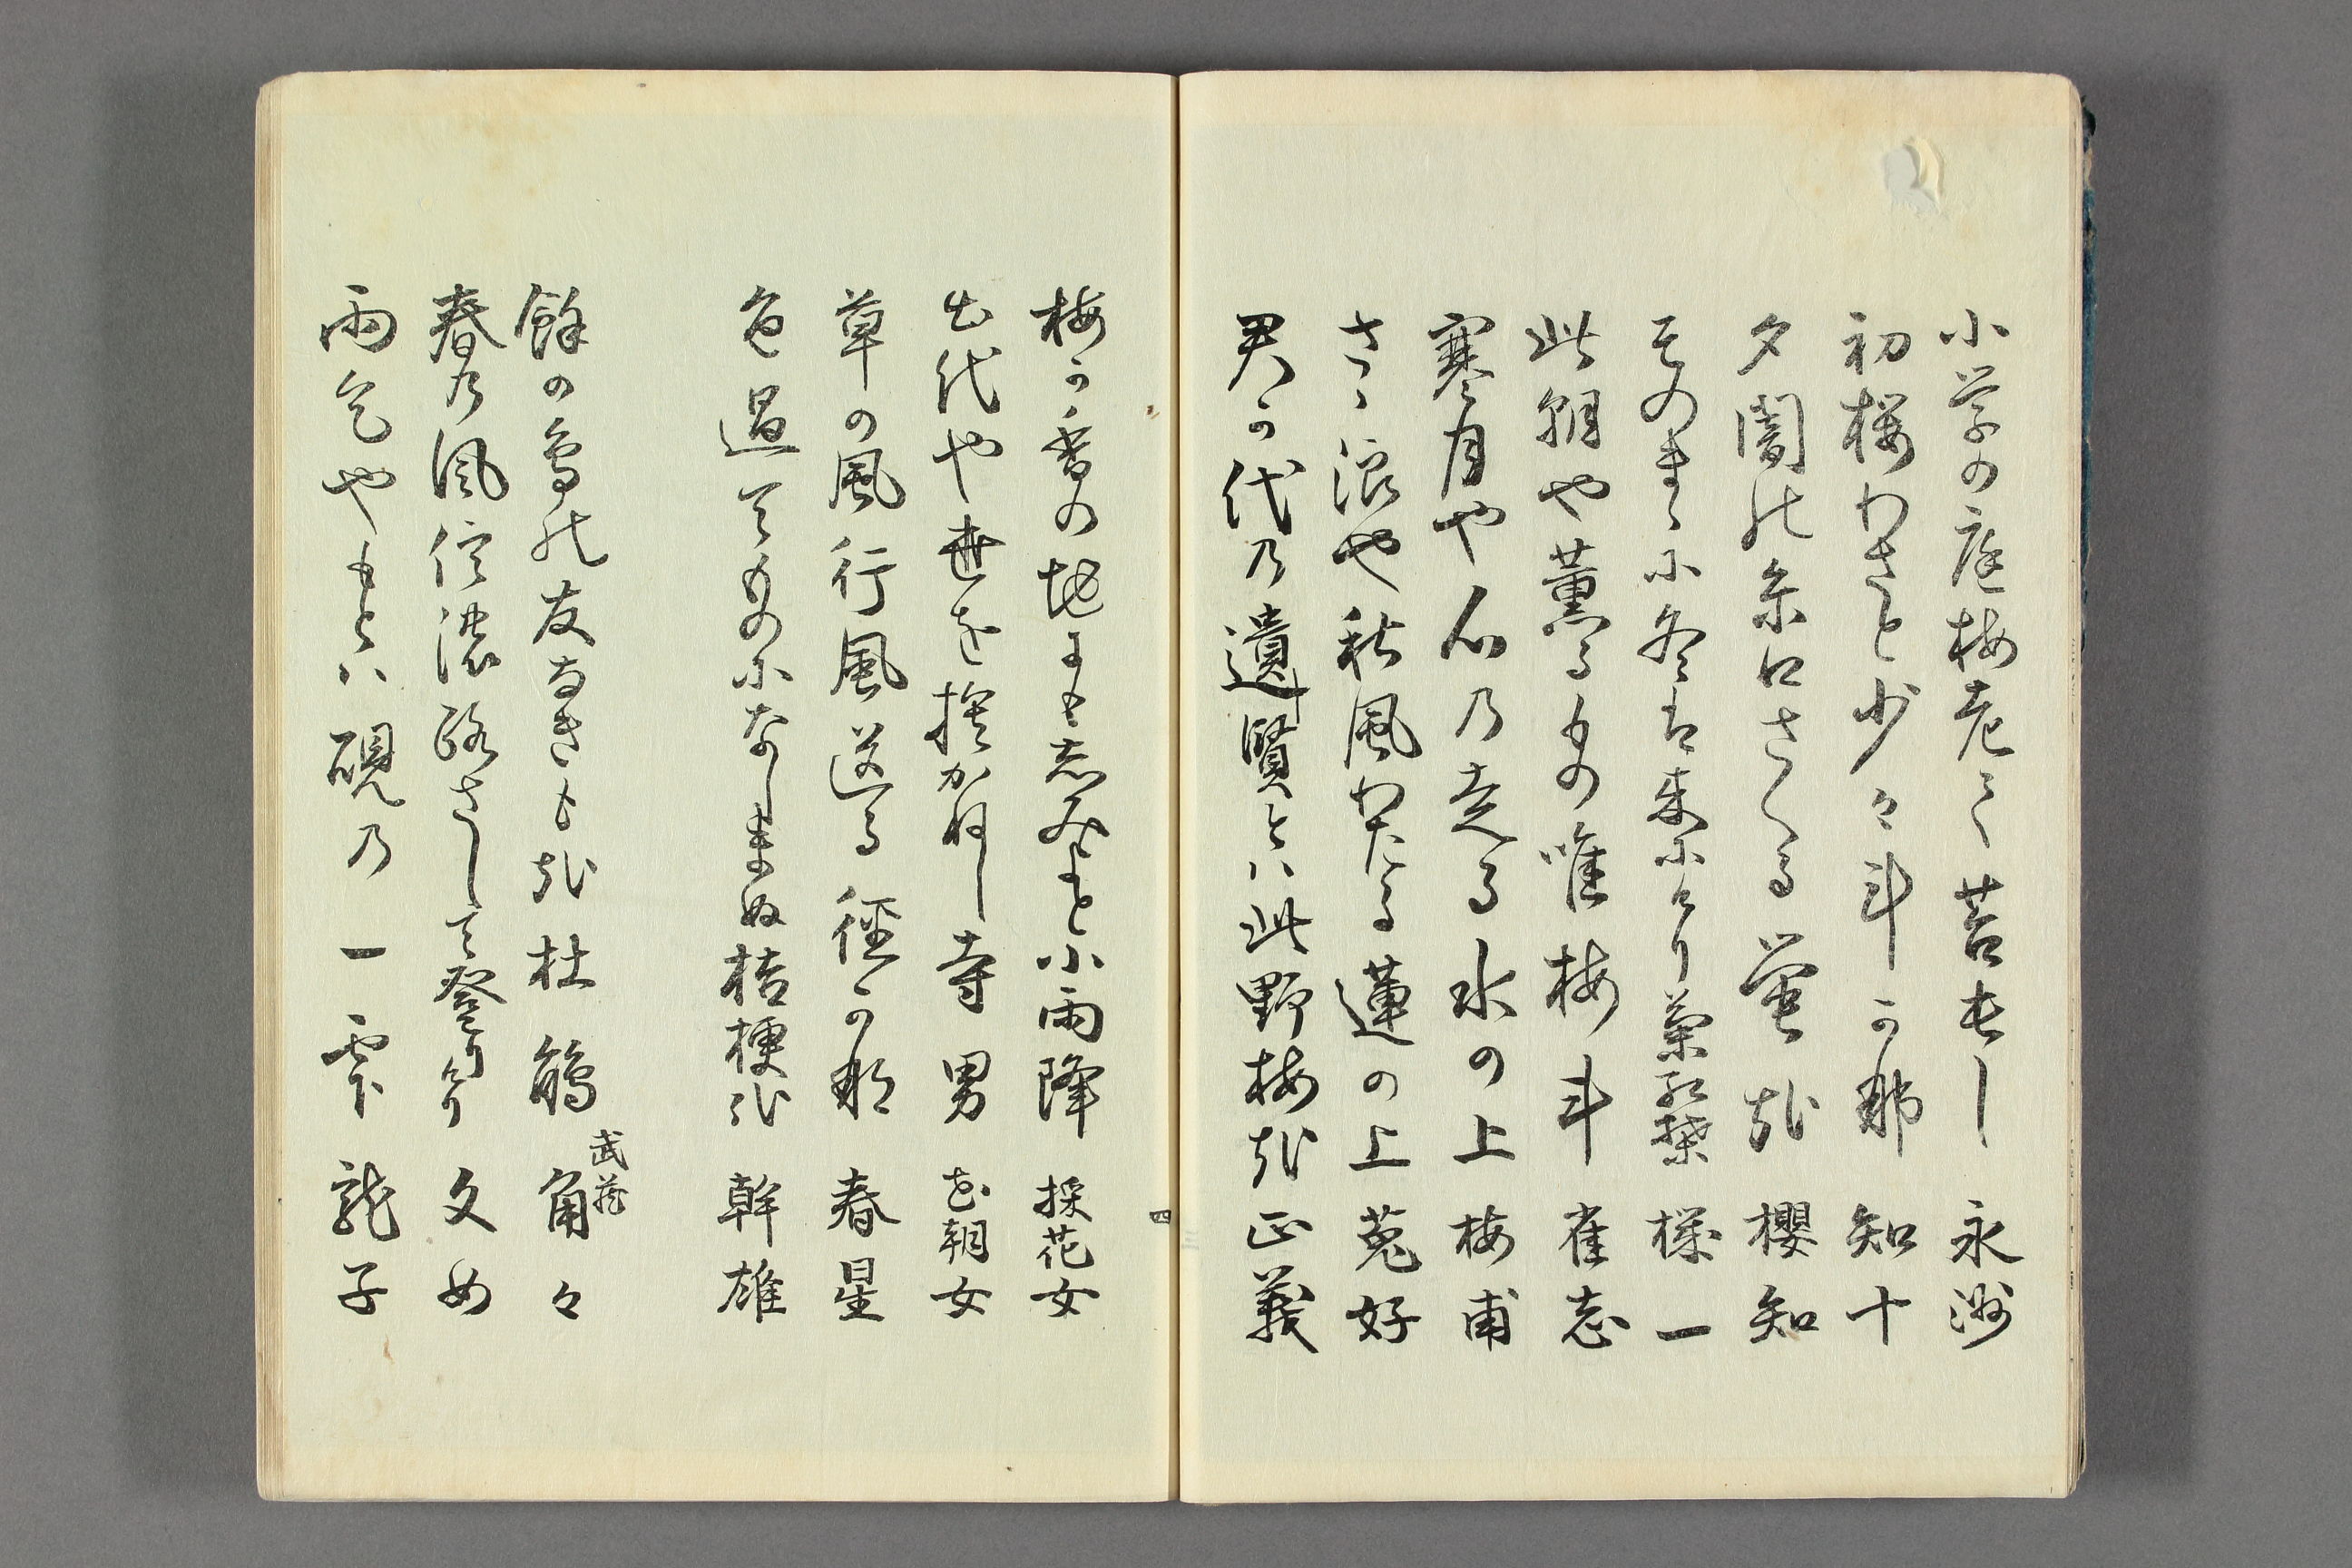 小学の庭梅老て苔むし　永洲
初桜わさと少々斗か那　知十
夕闇の糸口さくる蛍哉　櫻知
そのまゝに冬は来にけり菊紅葉　様一
此朝や薫るもの唯梅斗　雀志
寒月や心の走る水の上　梅甫
さゝ浪や秋風わたる蓮の上　莵好
君か代乃遺賢とハ此野梅哉　正義
四
梅か香の地にも志みよと小雨降　採花女
出代や世を捨かねし寺男　花朝女
草の風行風送る径か那　春星
色過てものになしまぬ桔梗哉　幹雄
武蔵
餘の鳥の友なきも哉杜鵑　角々
春乃風信濃路さして登りけり　文女
雨乞やもとハ硯乃一雫　龍子